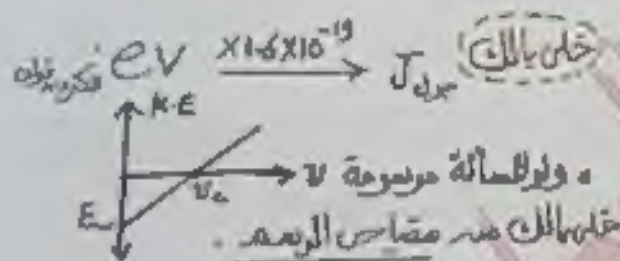 خلى بالك
إلكترون فولت ev ×1.6×10⁻¹⁹ → J جول
K.E
ولو المسألة مرسومة ν
ν꜀
E
خلى بالك من مفاتيح الرسم .